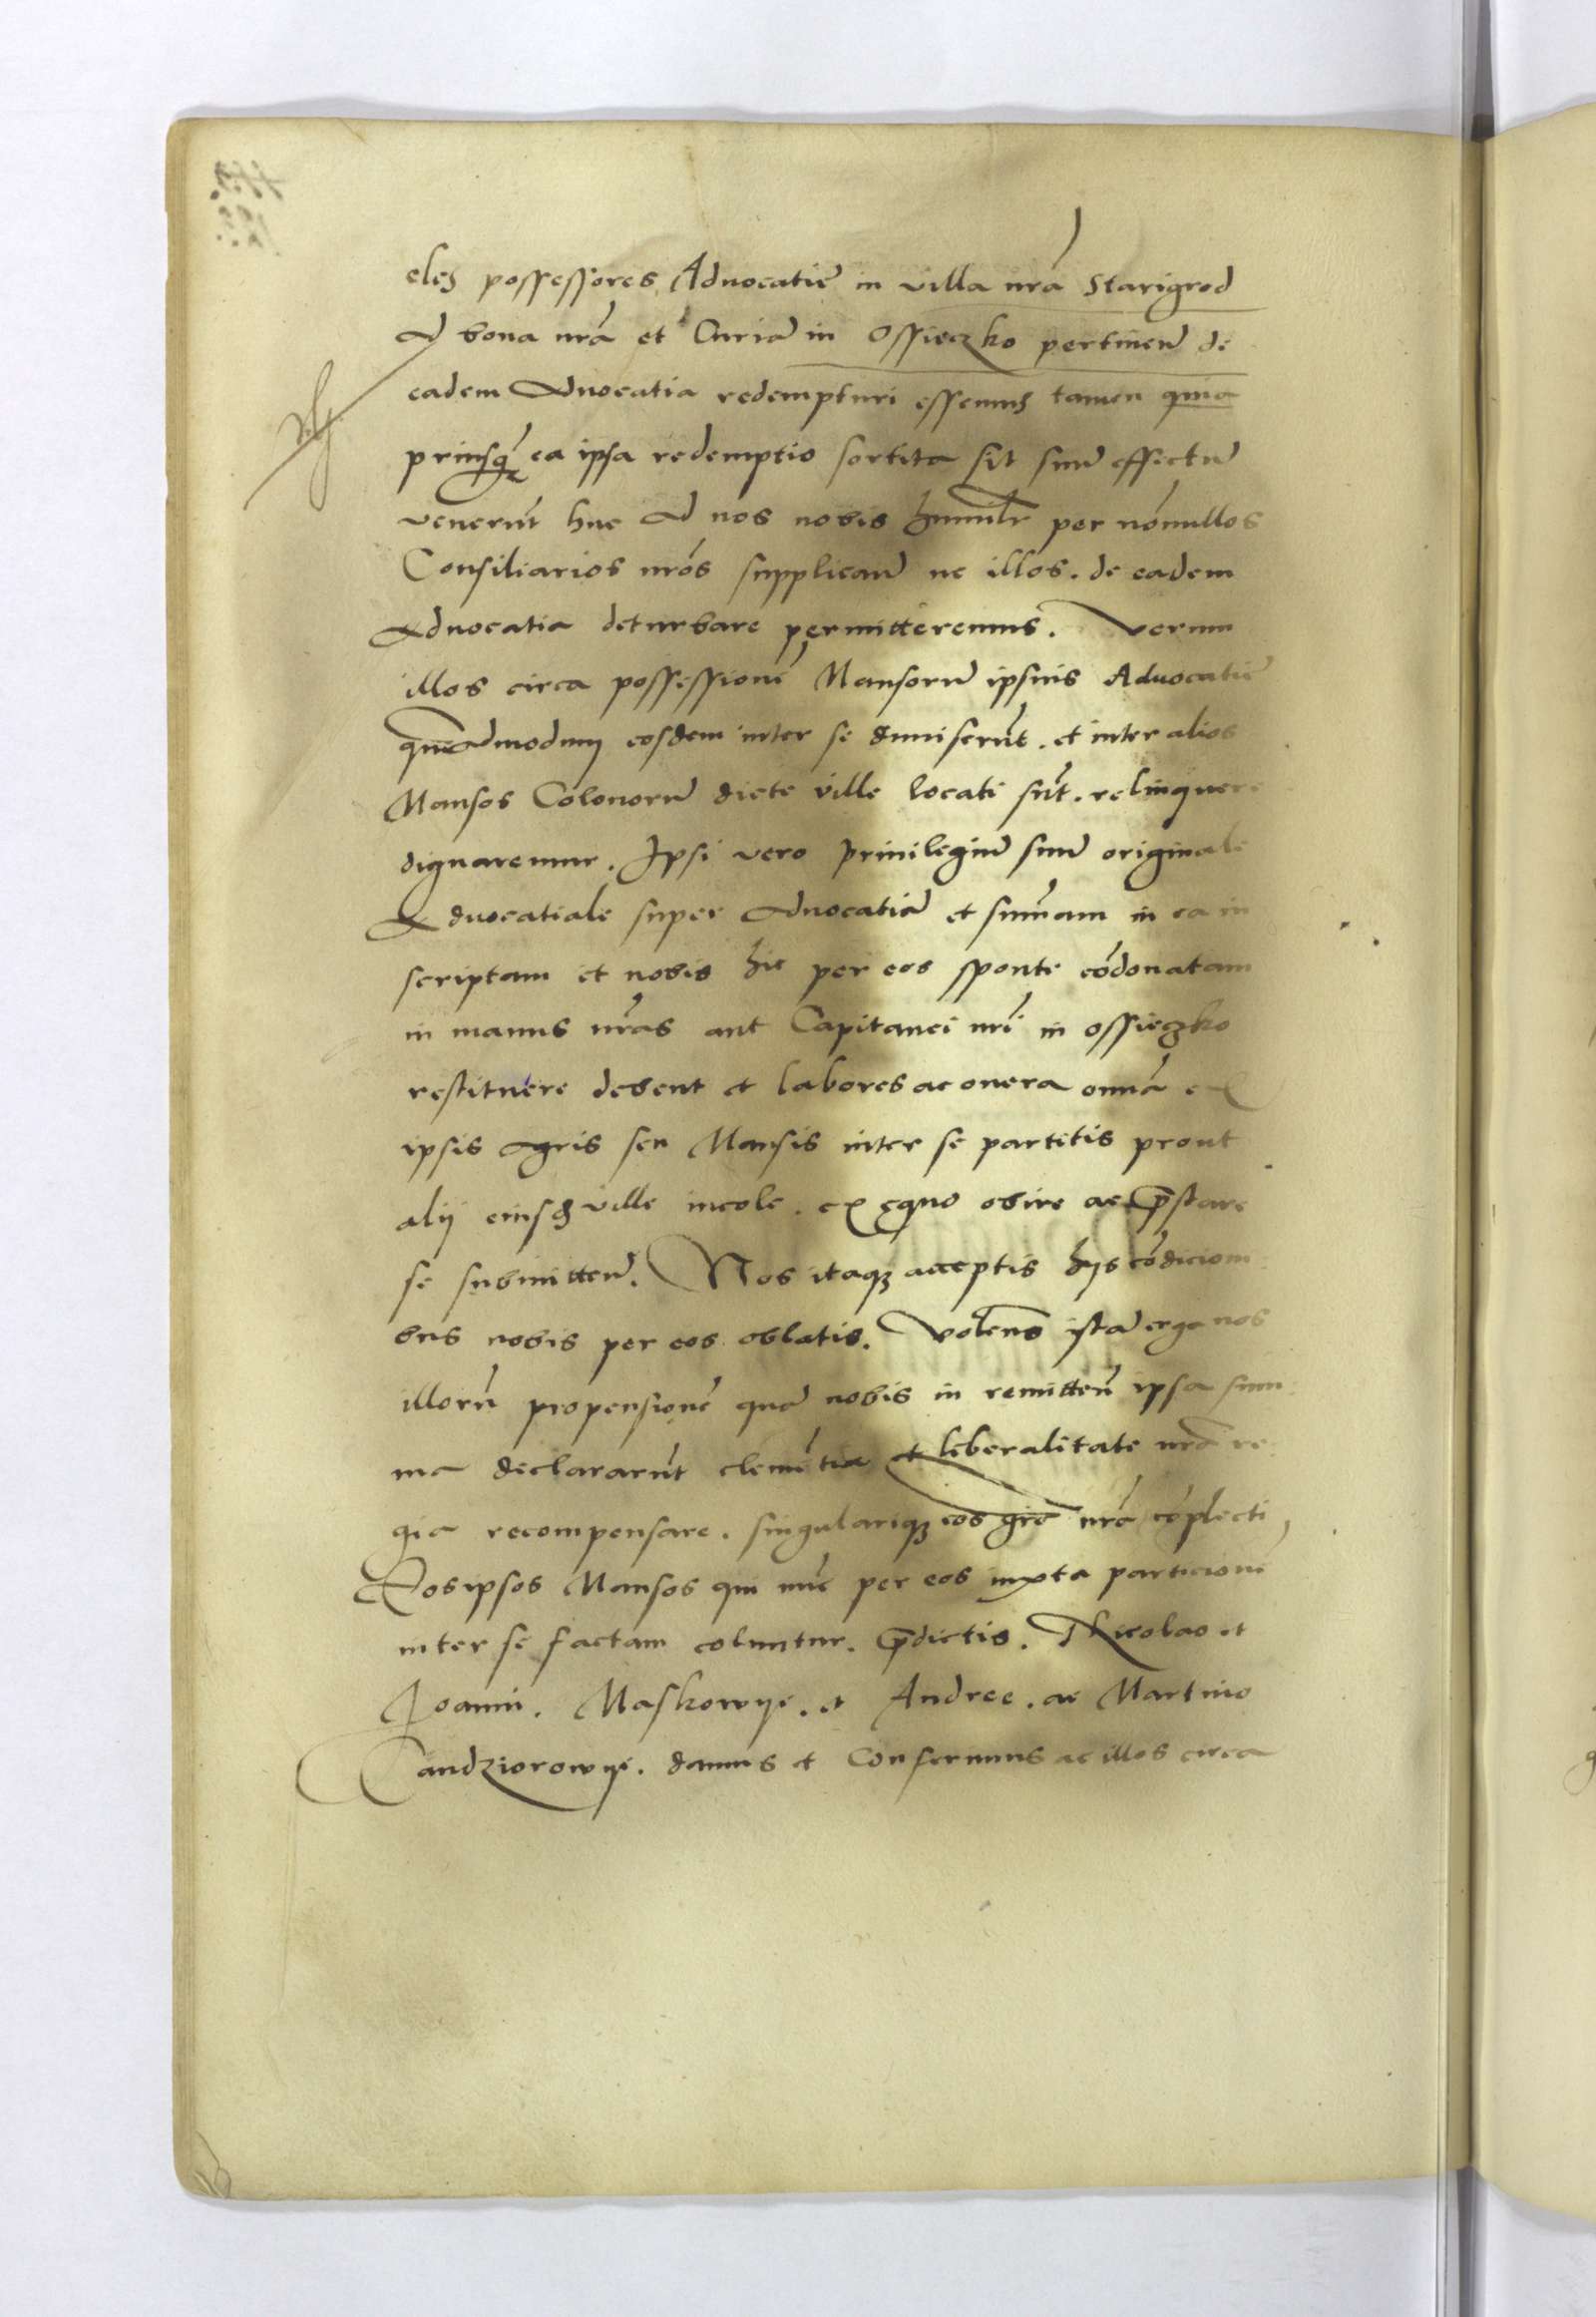 eles possessores Advocatie in villa nrã Starigrod
ad bona nrã et Curiã in Ossieczko pertinen̄ de
eadem Advocatia redempturi essemus tamen quia
priusq̃ ea ipsa redemptio sortita sit suũ effectũ
venerũt huc ad nos nobis humilr̄ per nõnullos
Consiliarios nrõs supplican̄ ne illos. de eadem
Advocatia deturbare permitteremus. Verum
illos circa possessionẽ Mansorũ ipsius Advocatie
quẽadmodum eosdem inter se diviserũt. et inter alios
Mansos Colonorũ dicte ville locati sũt. relinquere
dignaremur. Ipsi vero privilegiũ suũ originale
Advocatiale super Advocatiã et sum̃am in ea in
scriptam et nobis hic per eos sponte cõdonatam
in manus nrãs aut Capitanei nrĩ in ossieczko
restituere debent et labores ac onera omniã ex
ipsis agris seu Mansis inter se partitis prout
alij eiusd ville incole. ex ęquo obire ac p̃stare
se submitten̄. Nos itaq; acceptis hijs cõdicioni
bus nobis per eos oblatis. Volens istã erga nos
illorũ propensionẽ quã nobis in remitten̄ ipsa sum
ma declararũt clemẽtia et liberalitate nrã re
gia recompensare. singulariq; eos grã nrã cõplecti,
Eos ipsos Mansos qui nũc per eos iuxta particionẽ
inter se factam coluntur. p̃dictis. Nicolao et
Joanni. Maskowye. et Andree. ac Martino
Candziorowye. damus et Conferimus ac illos circa